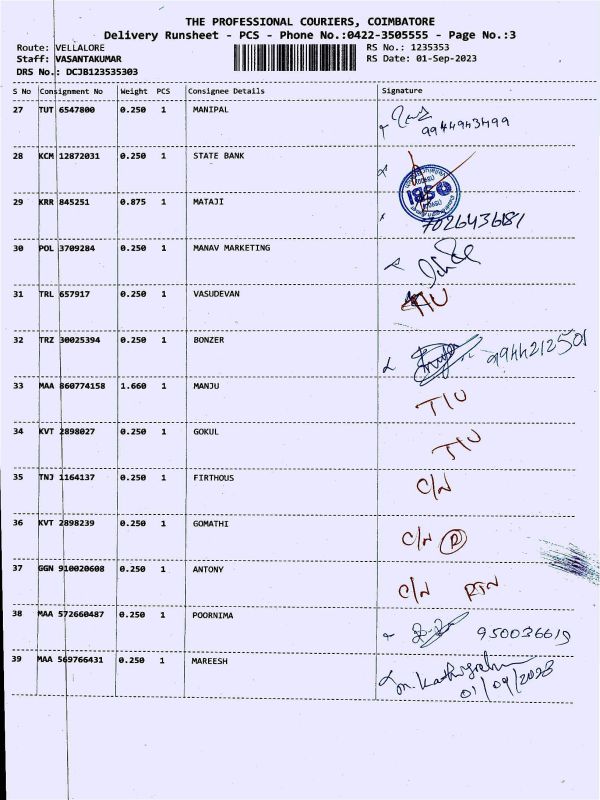 THE PROFESSIONAL COURIERS, COIMBATORE
Delivery Runsheet - PCS - Phone No.:0422-3505555 - Page No.:3
Route: VELLALORE RS No.: 1235353
Staff: VASANTAKUMAR RS Date: 01-Sep-2023
DRS No.: DCJB123535303
S No Consignment No Weight PCS Consignee Details Signature
27 TUT 6547800 0.250 1 MANIPAL
9944943499
28 KCM 12872031 0.250 1 STATE BANK
SBI
29 KRR 845251 0.875 1 MATAJI
7026436181
30 POL 3709284 0.250 1 MANAV MARKETING
31 TRL 657917 0.250 1 VASUDEVAN T/U
32 TRZ 30025394 0.250 1 BONZER 9944212501
33 MAA 860774158 1.660 1 MANJU T/U
34 KVT 2898027 0.250 1 GOKUL T/U
35 TNJ 1164137 0.250 1 FIRTHOUS C/N
36 KVT 2898239 0.250 1 GOMATHI C/N R
37 GGN 910020608 0.250 1 ANTONY C/N RTN
38 MAA 572660487 0.250 1 POORNIMA 950036619
39 MAA 569766431 0.250 1 MAREESH
01/09/2023